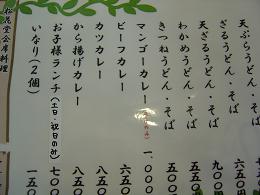 天ぷらうどん・そば
ざるうどん・そば
天ざるうどん・そば 九〇〇
わかめうどん・そば
きつねうどん・そば
マンゴーカレー 一、〇〇〇
ビーフカレー 六五〇
カツカレー 八
から揚げカレー 八
お子様ランチ(土・日・祝日のみ) 七〇〇
いなり(2個) 一五〇
松花堂会席料理